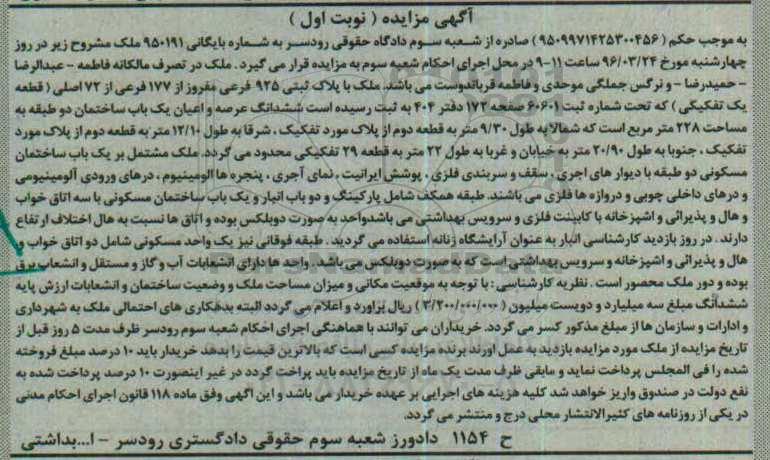 آگهی مزایده ( نوبت اول )
به موجب حکم ( ۹۵۰۹۹۷۱۴۲۵۳۰۰۴۵۶ ) صادره از شعبه سوم دادگاه حقوقی رودسر به شماره بایگانی ۹۵۰۱۹۱ ملک مشروح زیر در روز
چهارشنبه مورخ ۹۶/۰۳/۲۴ ساعت ۱۱-۹ در محل اجرای احکام شعبه سوم به مزایده قرار می گیرد . ملک در تصرف مالکانه فاطمه - عبدالرضا
- حمیدرضا - و نرگس جملگی موحدی و فاطمه قربانلوست می باشد. ملک با پلاک ثبتی ۹۲۵ فرعی مفروز از ۱۷۷ فرعی از ۷۲ اصلی ( قطعه
یک تفکیکی ) که تحت شماره ثبت ۶۰۶۰۱ صفحه ۱۷۲ دفتر ۴۰۴ به ثبت رسیده است ششدانگ عرصه و اعیان یک باب ساختمان دو طبقه به
مساحت ۲۲۸ متر مربع است که شمالا به طول ۹/۳۰ متر به قطعه دوم از پلاک مورد تفکیک ، شرقا به طول ۱۲/۱۰ متر به قطعه دوم از پلاک مورد
تفکیک ، جنوبا به طول ۲۰/۹۰ متر به خیابان و غربا به طول ۲۲ متر به قطعه ۲۹ تفکیکی محدود می گردد. ملک مشتمل بر یک باب ساختمان
مسکونی دو طبقه با دیوار های اجری ، سقف و سربندی فلزی ، پوشش ایرانیت ، نمای آجری ، پنجره ها الومینیوم ، درهای ورودی آلومینیومی
و درهای داخلی چوبی و دروازه ها فلزی می باشند. طبقه همکف شامل پارکینگ و دو باب انبار و یک باب ساختمان مسکونی با سه اتاق خواب
و هال و پذیرائی و اشپزخانه با کابینت فلزی و سرویس بهداشتی می باشدواحد به صورت دوبلکس بوده و اتاق ها نسبت به هال اختلاف ارتفاع
دارند . در روز بازدید کارشناسی انبار به عنوان آرایشگاه زنانه استفاده می گردید . طبقه فوقانی نیز یک واحد مسکونی شامل دو اتاق خواب و
هال و پذیرائی و اشپزخانه و سرویس بهداشتی است که به صورت دوبلکس می باشد . واحد ها دارای انشعابات آب و گاز و مستقل و انشعاب برق
بوده و دور ملک محصور است . نظریه کارشناسی : با توجه به موقعیت مکانی و میزان مساحت ملک و وضعیت ساختمان و انشعابات ارزش پایه
ششدانگ مبلغ سه میلیارد و دویست میلیون ( ۳/۲۰۰/۰۰۰/۰۰۰ ) ریال براورد و اعلام می گردد البته بدهکاری های احتمالی ملک به شهرداری
و ادارات و سازمان ها از مبلغ مذکور کسر می گردد. خریداران می توانند با هماهنگی اجرای احکام شعبه سوم رودسر ظرف مدت ۵ روز قبل از
تاریخ مزایده از ملک مورد مزایده بازدید به عمل اورند برنده مزایده کسی است که بالاترین قیمت را بدهد خریدار باید ۱۰ درصد مبلغ فروخته
شده را فی المجلس پرداخت نماید و مابقی ظرف مدت یک ماه از تاریخ مزایده باید پراخت گردد در غیر اینصورت ۱۰ درصد پرداخت شده به
نفع دولت در صندوق واریز خواهد شد کلیه هزینه های اجرایی بر عهده خریدار می باشد و این اگهی وفق ماده ۱۱۸ قانون اجرای احکام مدنی
در یکی از روزنامه های کثیرالانتشار محلی درج و منتشر می گردد.
ح ۱۱۵۴ دادورز شعبه سوم حقوقی دادگستری رودسر - ا...بداشتی